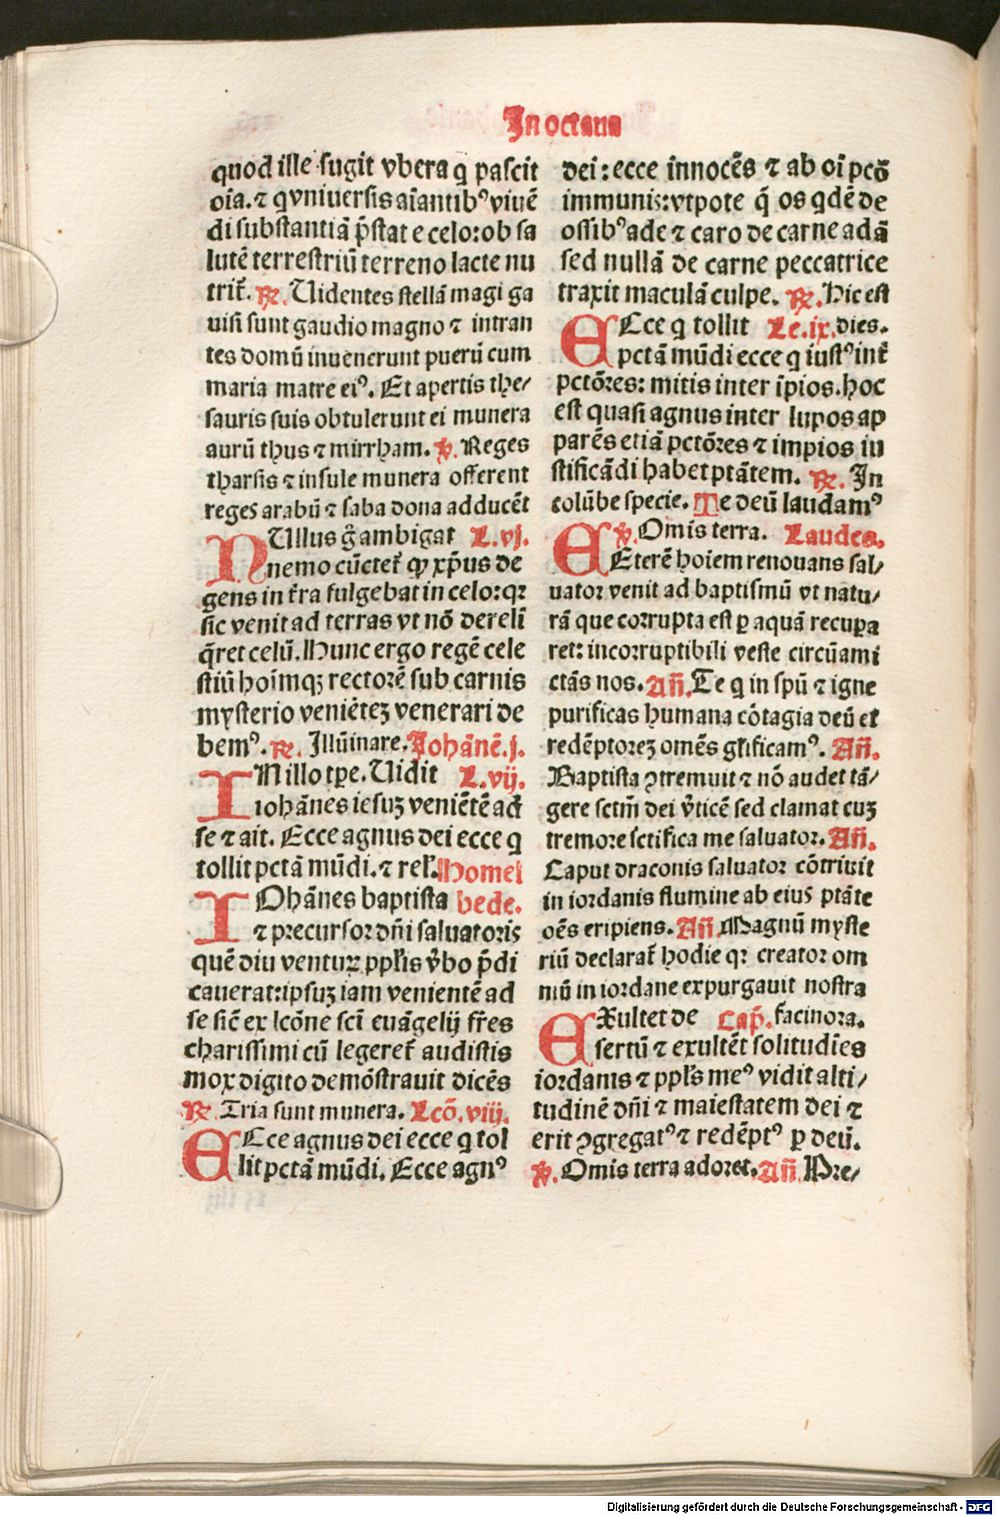 In octaua
quod ille sugit vbera q̄ pascit
oīa. ⁊ q vniuersis aīantib⁹ viuē
di substantiā p̄stat e celo: ob sa
lutē terrestriū terreno lacte nu
trit̄. ℟. Uidentes stellā magi ga
uisi sunt gaudio magno ⁊ intran
tes domū inuenerunt puerū cum
maria matre ei⁹. Et apertis the/
sauris suis obtulerunt ei munera
aurū thus ⁊ mirrham. ℣. Reges
tharsis ⁊ insule munera offerent
reges arabū ⁊ saba dona adducēt
NUllus g̃ ambigat L.vj.
nemo cūctet̄ qꝫ xp̄us de
gens in t̄ra fulgebat in celo: qꝛ
sic venit ad terras vt nō dereli
q̄ret celū. Hunc ergo regē cele
stiū hoīmqꝫ rectorē sub carnis
mysterio veniētēꝫ venerari de
bem⁹. ℟. Illūinare. Johānē.j.
IN illo tp̄e. Uidit L.vij.
iohānes iesuꝫ veniētē ad
se ⁊ ait. Ecce agnus dei ecce q
tollit pctā mūdi. ⁊ rel̄. Homel
IOhānes baptista bede.
⁊ precursor dn̄i saluatoris
quē diu venturꝫ ppl̄is v̄bo p̄di
cauerat: ipsuꝫ iam venientē ad
se sic̄ ex lc̄one sc̄i euāgelij fr̄es
charissimi cū legeret̄ audistis
mox digito demōstrauit dicēs
℟. Tria sunt munera. Lcō.viii.
ECce agnus dei ecce q tol
lit pctā mūdi. Ecce agn⁹
dei: ecce innocēs ⁊ ab oī pctō
immunis: vtpote q̄ os qdē de
ossib⁹ ade ⁊ caro de carne adā
sed nullā de carne peccatrice
traxit maculā culpe. ℟. Hic est
ECce q tollit Le.ix. dies.
pctā mūdi ecce q iust⁹ int̄
pctōres: mitis inter īpios. hoc
est quasi agnus inter lupos ap
parēs etiā pctōres ⁊ impios iu
stificādi habet ptātem. ℟. In
colūbe specie. Te deū laudam⁹
℣. Omīs terra. Laudes.
EEterē hoīem renouans sal/
uator venit ad baptismū vt natu/
rā que corrupta est ꝑ aquā recupa
ret: incorruptibili veste circūami
ctās nos. Añ. Te q in spū ⁊ igne
purificas humana cōtagia deū et
redēptoreꝫ omēs gl̄ificam⁹. Añ.
Baptista ꝯtremuit ⁊ nō audet tā/
gere sctm̄ dei v̄ticē sed clamat cuꝫ
tremore sctifica me saluator. Añ.
Caput draconis saluator cōtriuit
in iordanis flumine ab eius ptāte
oēs eripiens. Añ. Magnū myste
riū declarat̄ hodie qꝛ creator om
niū in iordane expurgauit nostra
EXultet de Cap̄. facinora.
sertū ⁊ exultēt solitudīes
iordanis ⁊ ppl̄s me⁹ vidit alti/
tudinē dn̄i ⁊ maiestatem dei ⁊
erit ꝯgregat⁹ ⁊ redēpt⁹ ꝑ deū.
℣. Omīs terra adoret. Añ. Pre/
Digitalisierung gefördert durch die Deutsche Forschungsgemeinschaft - DFG